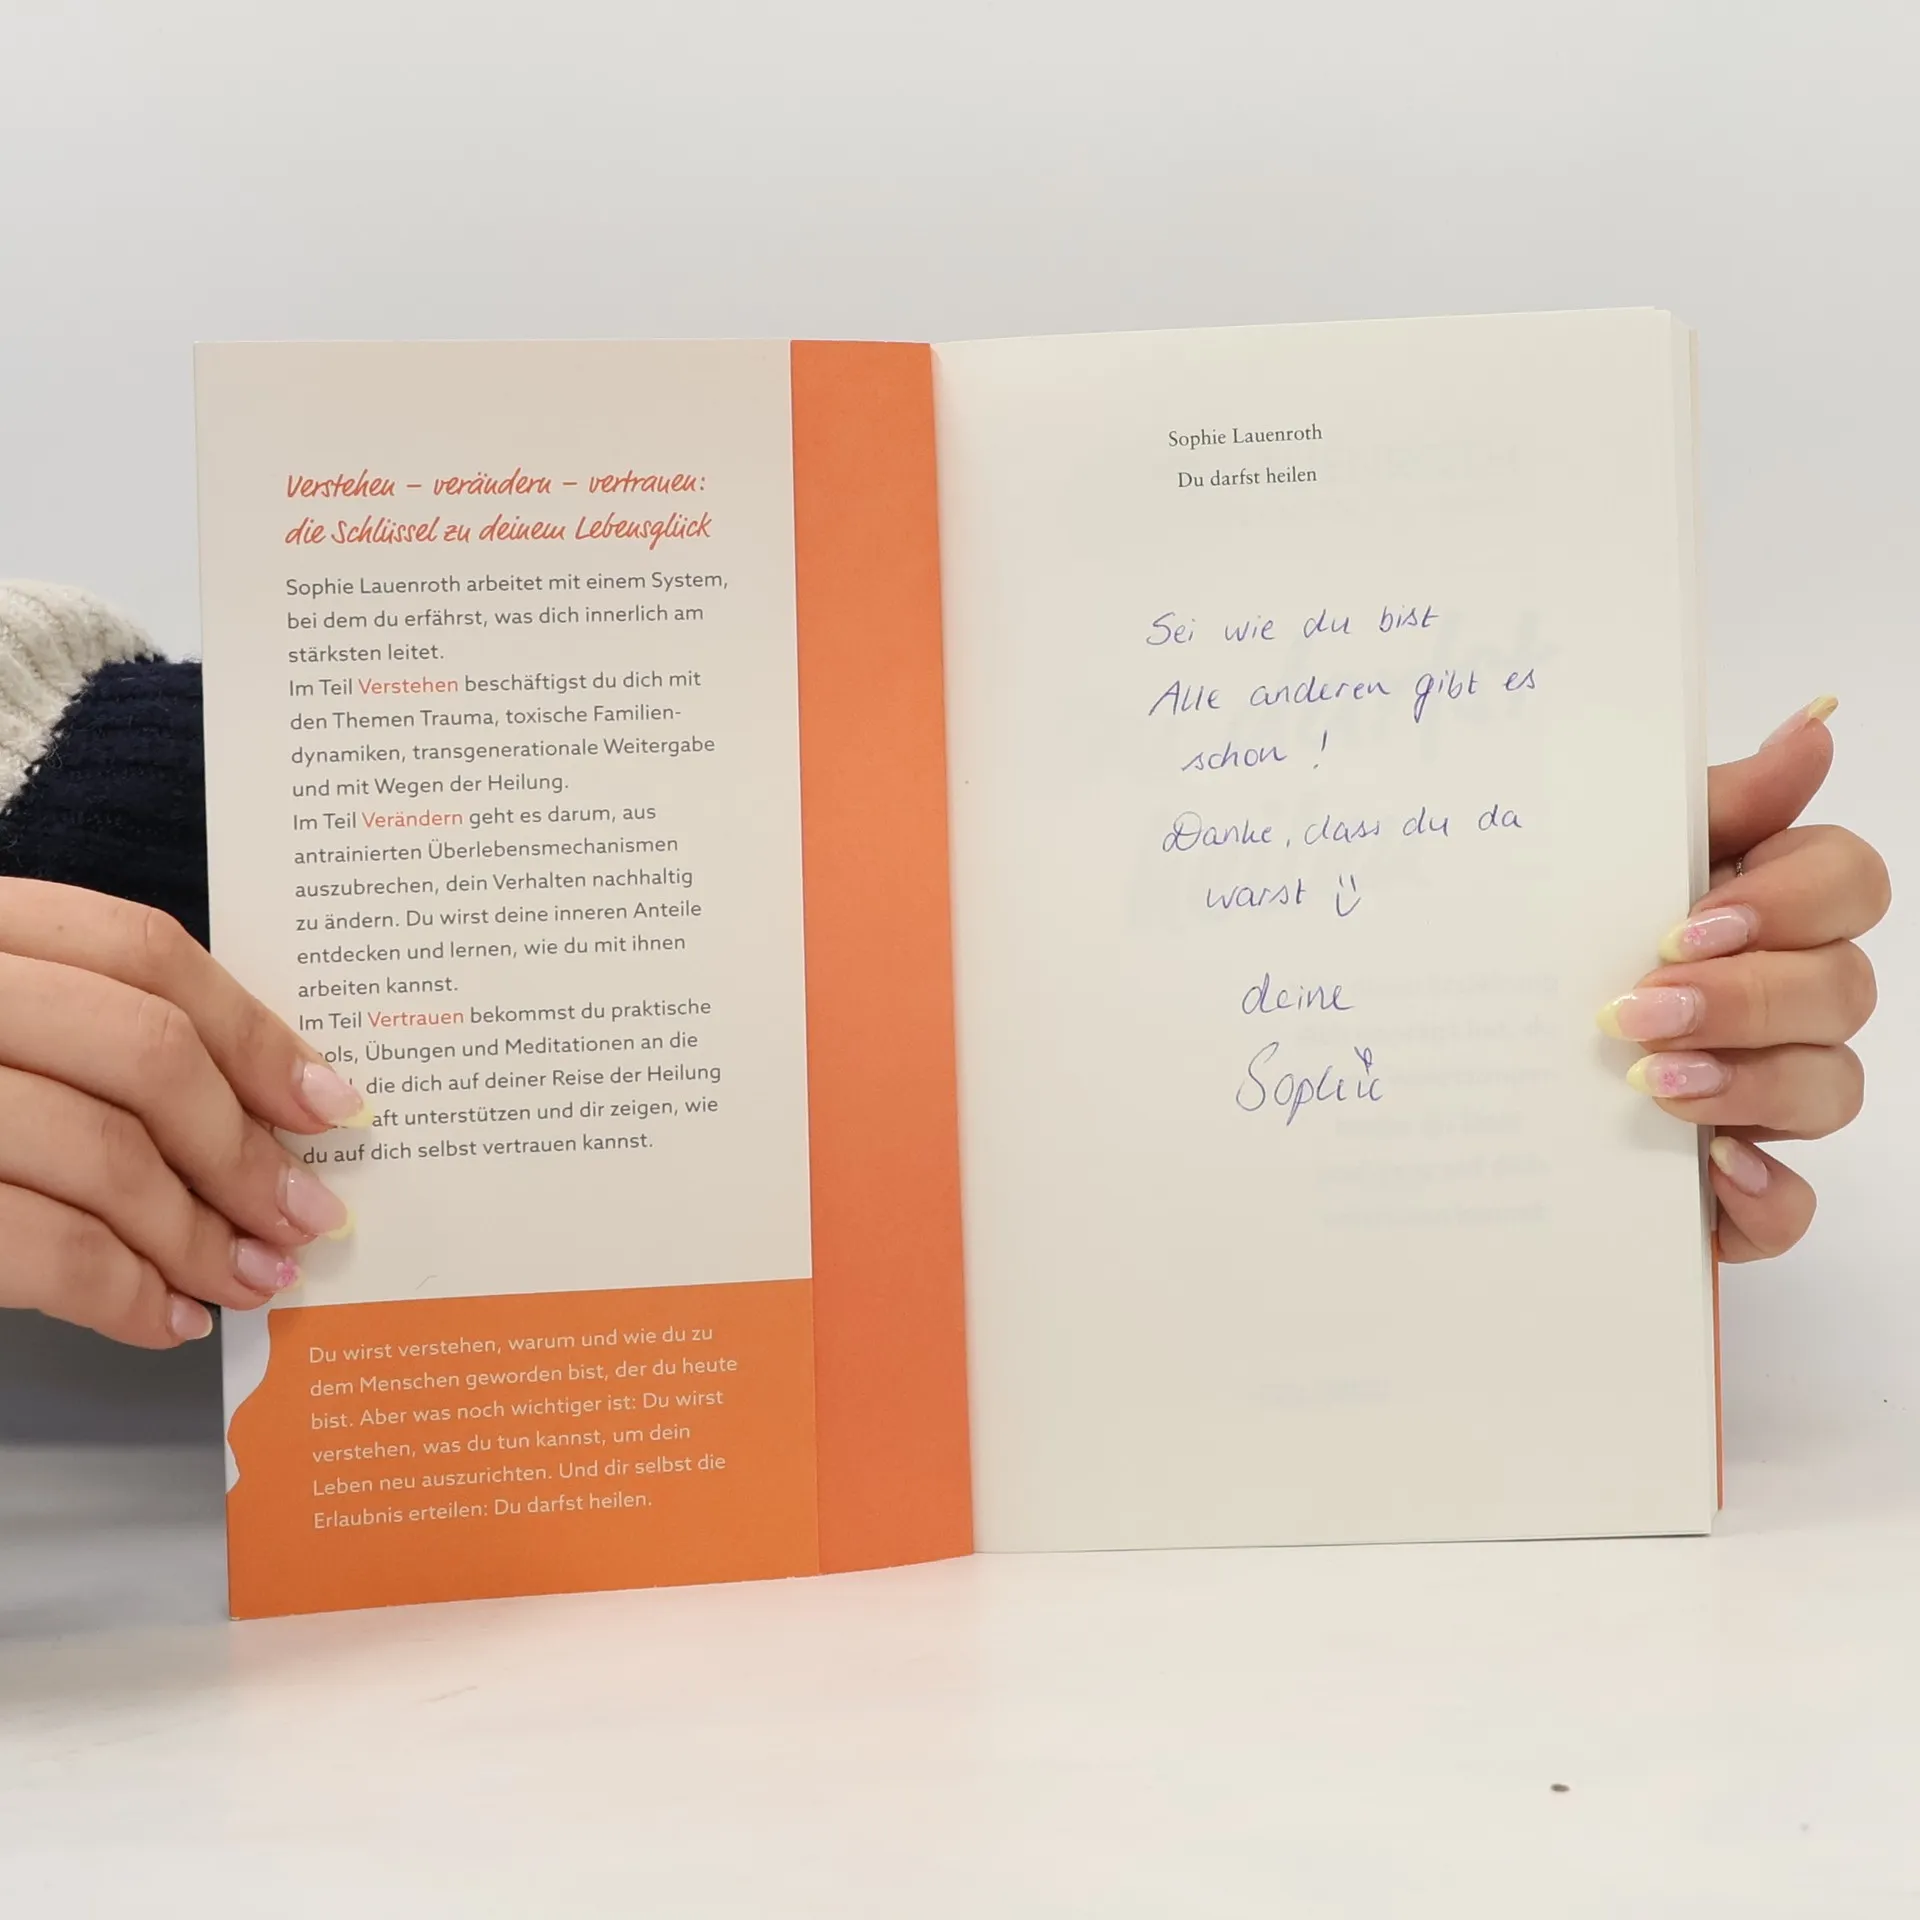 Verstehen – verändern – vertrauen:
die Schlüssel zu deinem Lebensglück
Sophie Lauenroth arbeitet mit einem System,
bei dem du erfährst, was dich innerlich am
stärksten leitet.
Im Teil Verstehen beschäftigst du dich mit
den Themen Trauma, toxische Familien-
dynamiken, transgenerationale Weitergabe
und mit Wegen der Heilung.
Im Teil Verändern geht es darum, aus
antrainierten Überlebensmechanismen
auszubrechen, dein Verhalten nachhaltig
zu ändern. Du wirst deine inneren Anteile
entdecken und lernen, wie du mit ihnen
arbeiten kannst.
Im Teil Vertrauen bekommst du praktische
Übungen und Meditationen an die
die dich auf deiner Reise der Heilung
unterstützen und dir zeigen, wie
du auf dich selbst vertrauen kannst.
Du wirst verstehen, warum und wie du zu
dem Menschen geworden bist, der du heute
bist. Aber was noch wichtiger ist: Du wirst
verstehen, was du tun kannst, um dein
Leben neu auszurichten. Und dir selbst die
Erlaubnis erteilen: Du darfst heilen.
Sophie Lauenroth
Du darfst heilen
Sei wie du bist
Alle anderen gibt es
schon !
Danke, dass du da
warst
deine
Sophie